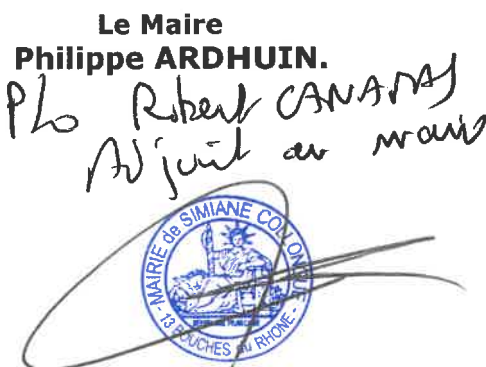 Le Maire
Philippe ARDHUIN.
P/o Robert CANAMAS
Adjoint au maire
MAIRIE de SIMIANE COLLONGUE
- 13 BOUCHES du RHONE -